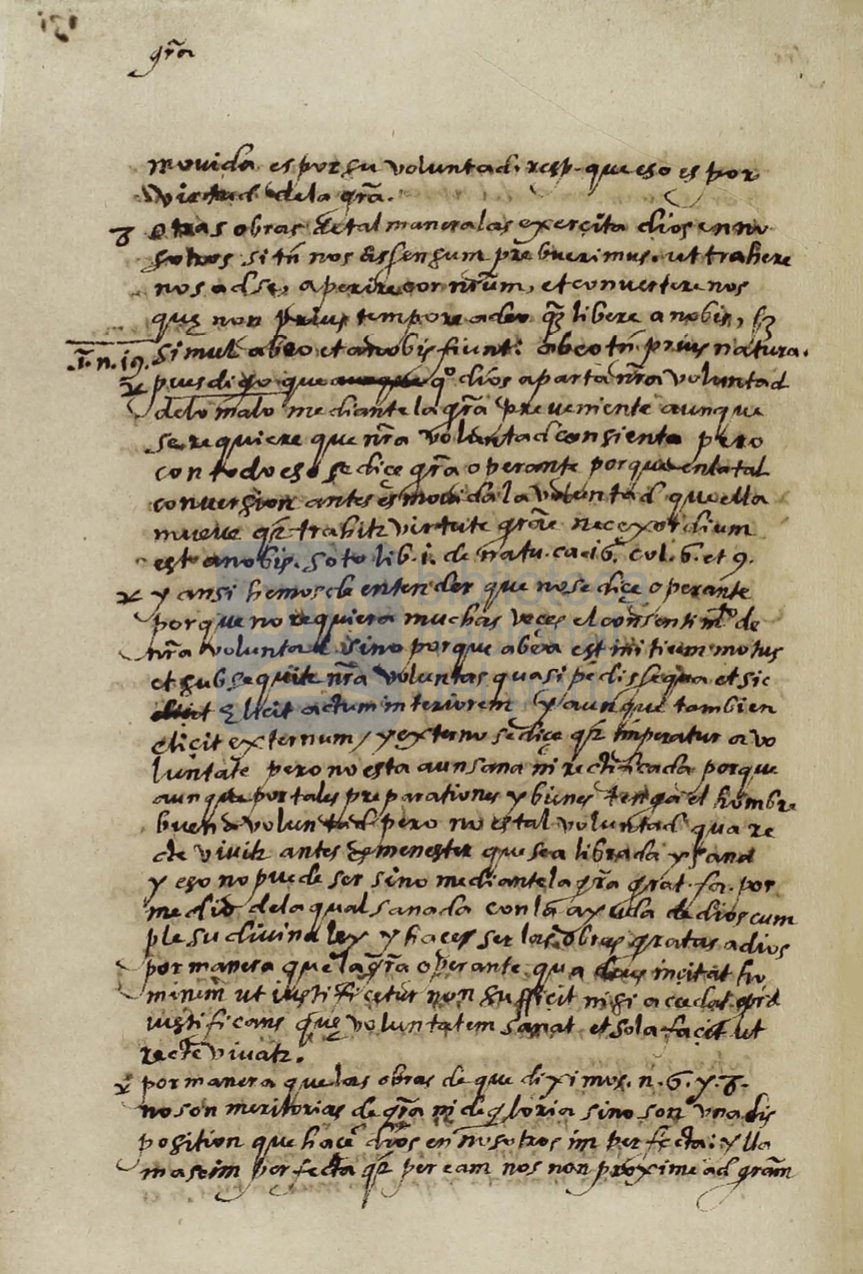 grã
movida es por su voluntad. resp. que eso es por
virtud dela grã.
8 otras obras de tal manera las exercita dios en no
sotros si tñ nos assensum prębuerimus. ut trahere
nos ad se, aperire cor nrũm, et convertere nos
quę non prius tempore a deo qz libere a nobis, sz
simul a deo et a nobis fiunt: a deo tñ prius natura.
J. n. 19. pues digo que qº dios aparta nrã voluntad
delo malo mediante la grã preveniente aunque
se requiere que nrã voluntad consienta pero
con todo eso se diçe grã operante porque en la tal
conversion antes es movida la voluntad que ella
mueve qz trahitz virtute grãe nec exordium
est a nobis. soto lib. i. de natu. ca. i6. col. 6. et 9.
y ansi hemos de entender que no se diçe operante
porque no requiera muchas veçes el consentimtº de
nrã voluntad sino porque a deo est initium motus
et subsequitz nrã voluntas quasi pedissequa et sic
elicit actum interiorem y aunque tambien
eliçit externum, y externo se diçe qz imperatur a vo
luntate pero no esta aun sana ni rectificada porque
aunque por tales preparationes y bienes tenga el hombre
buena voluntad pero no es tal voluntad qua re
cte vivitz antes es menester que sea librada y sana
y eso no puede ser sino mediante la grã grat. fa. por
medio dela qual sanada con la ayuda de dios cum
ple su divina ley y haçes ser las obras gratas a dios
por manera que la grã operante qua deus incitat ho
minem ut iustificetur non sufficit nisi accedat grã
iustificans quę voluntatem sanat et sola facit ut
recte vivatz.
por manera que las obras de que diximos. n. 6. y. 8.
no son meritorias de grã ni de gloria sino son una dis
position que haçe dios en nosotros imperfecta: y lla
mase imperfecta qz per eam nos non proxime ad grãm